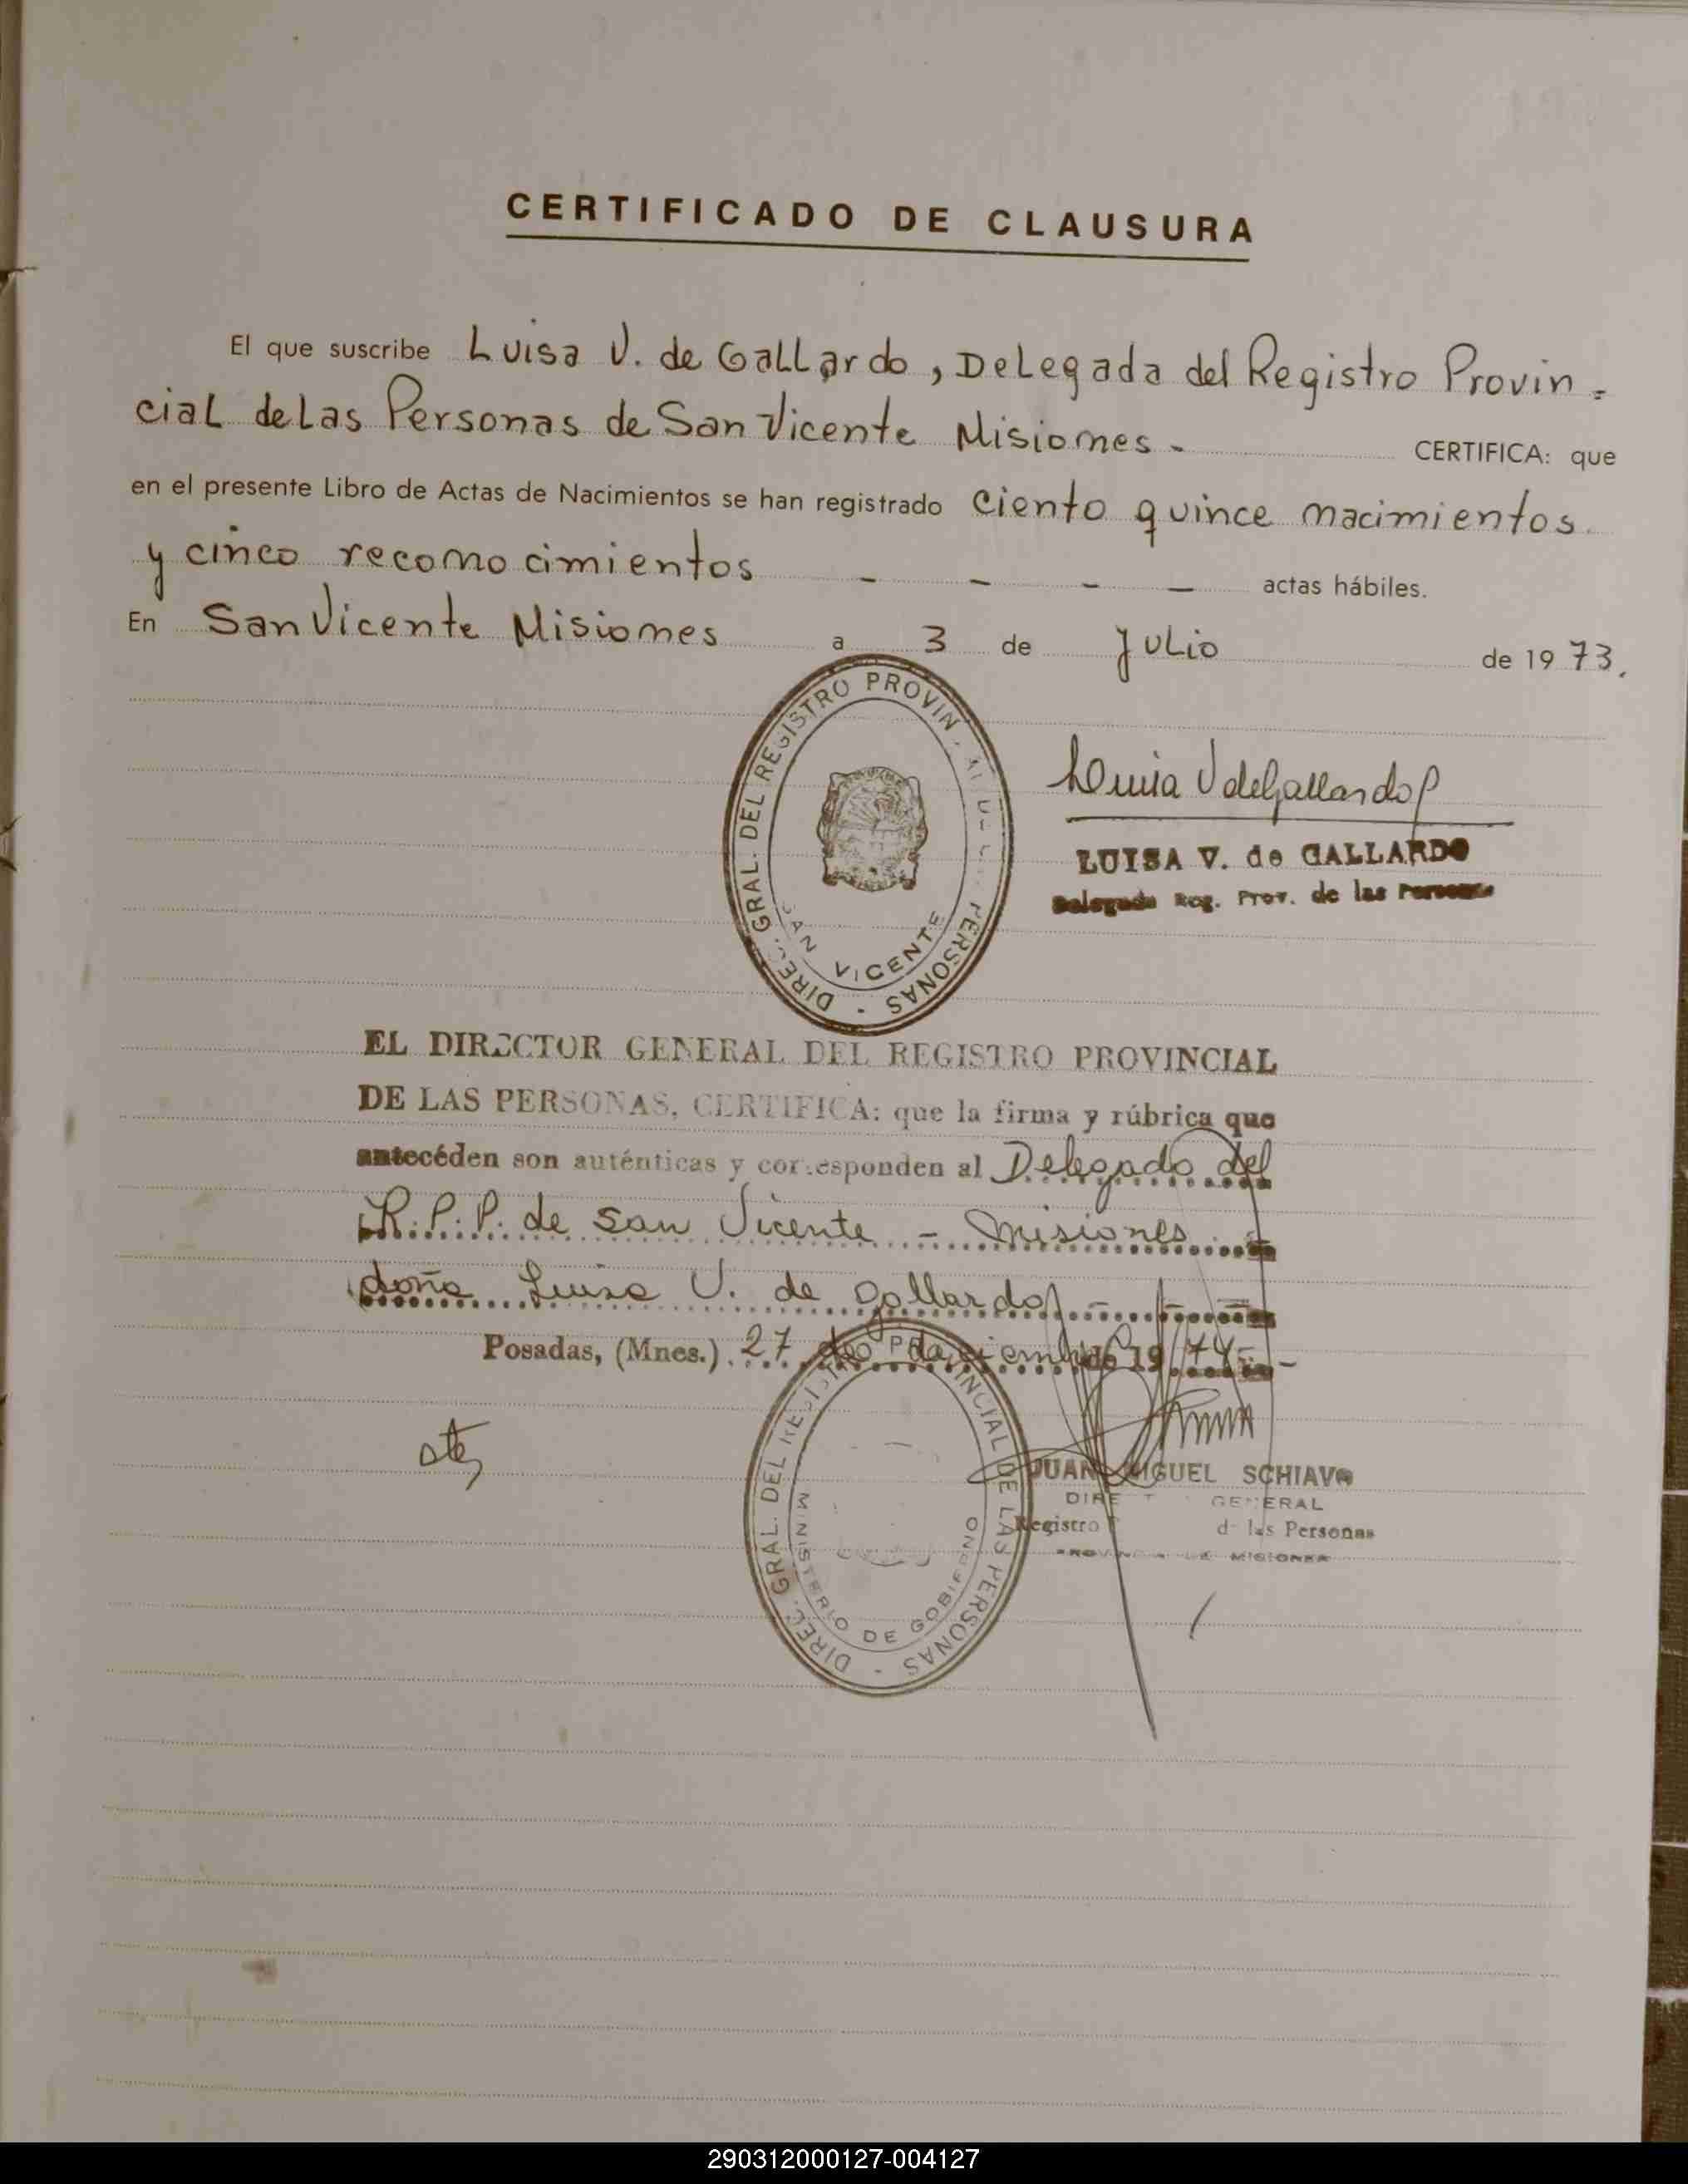 CERTIFICADO DE CLAUSURA
El que suscribe Luisa V. de Gallardo, Delegada del Registro Provin=
cial de las Personas de San Vicente Misiones - CERTIFICA: que
en el presente Libro de Actas de Nacimientos se han registrado Ciento quince nacimientos
y cinco reconocimientos - - - - actas hábiles.
En San Vicente Misiones a 3 de Julio de 1973.
DIREC. GRAL. DEL REGISTRO PROVINCIAL DE LAS PERSONAS
SAN VICENTE
Luisa V de Gallardo
LUISA V. de GALLARDO
Delegada Reg. Prov. de las Personas
EL DIRECTOR GENERAL DEL REGISTRO PROVINCIAL
DE LAS PERSONAS, CERTIFICA: que la firma y rúbrica que
antecéden son auténticas y corresponden al Delegado del
R.P.P. de San Vicente - Misiones
doña Luisa V. de Gallardo - - -
Posadas, (Mnes.) 27 de diciembre de 1974 -
DIREC. GRAL. DEL REGISTRO PROVINCIAL DE LAS PERSONAS
MINISTERIO DE GOBIERNO
JUAN MIGUEL SCHIAVO
DIRECTOR GENERAL
Registro P de las Personas
PROVINCIA DE MISIONES
290312000127-004127